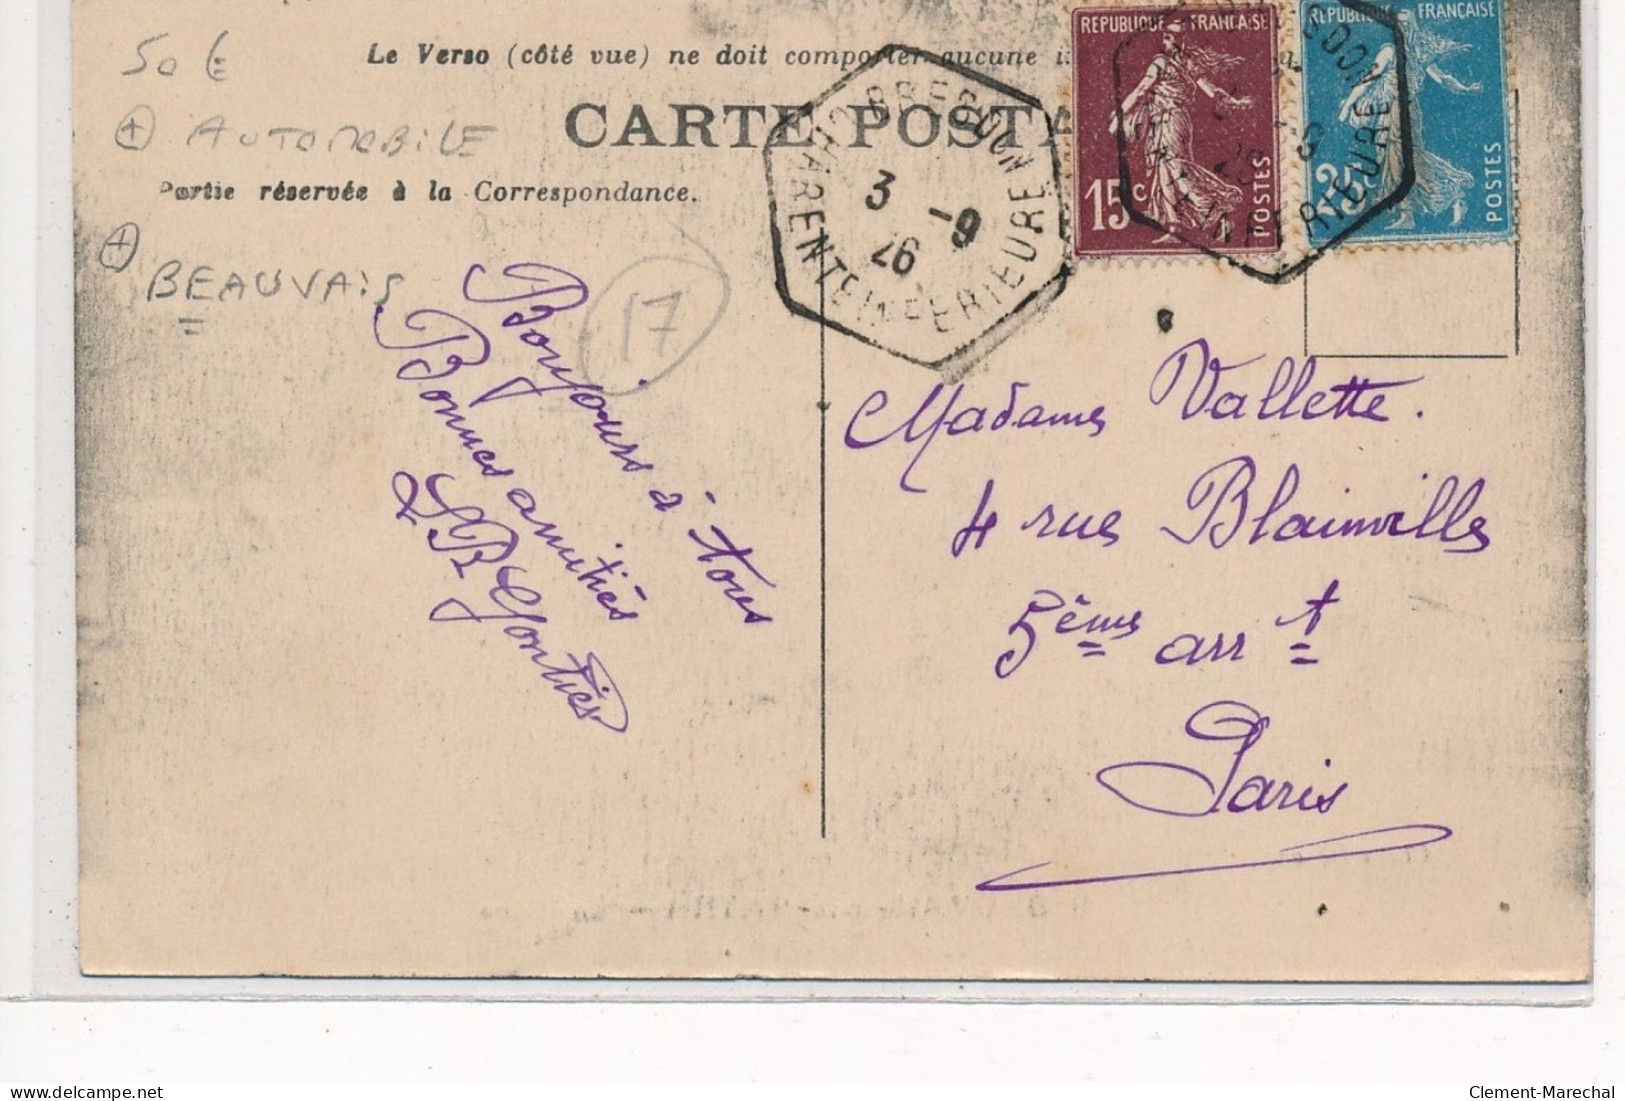 50 €
Le Verso (côté vue) ne doit comporter aucune
+ AUTOMOBILE
CARTE POSTA
Partie réservée à la Correspondance.
+
BEAUVAIS
17
BRESDON
3 -9
26
CHARENTE INFERIEURE
REPUBLIQUE FRANÇAISE
15c POSTES
REPUBLIQUE FRANÇAISE
POSTES
BRESDON
INFERIEURE
Bonjours à tous
Bonnes amitiés
Madame Vallette.
4 rue Blainville
5ème arrt
Paris
www.delcampe.net
Clement-Marechal